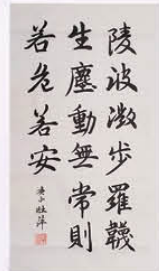 陵波激步羅韈
生塵動無常則
若危若安